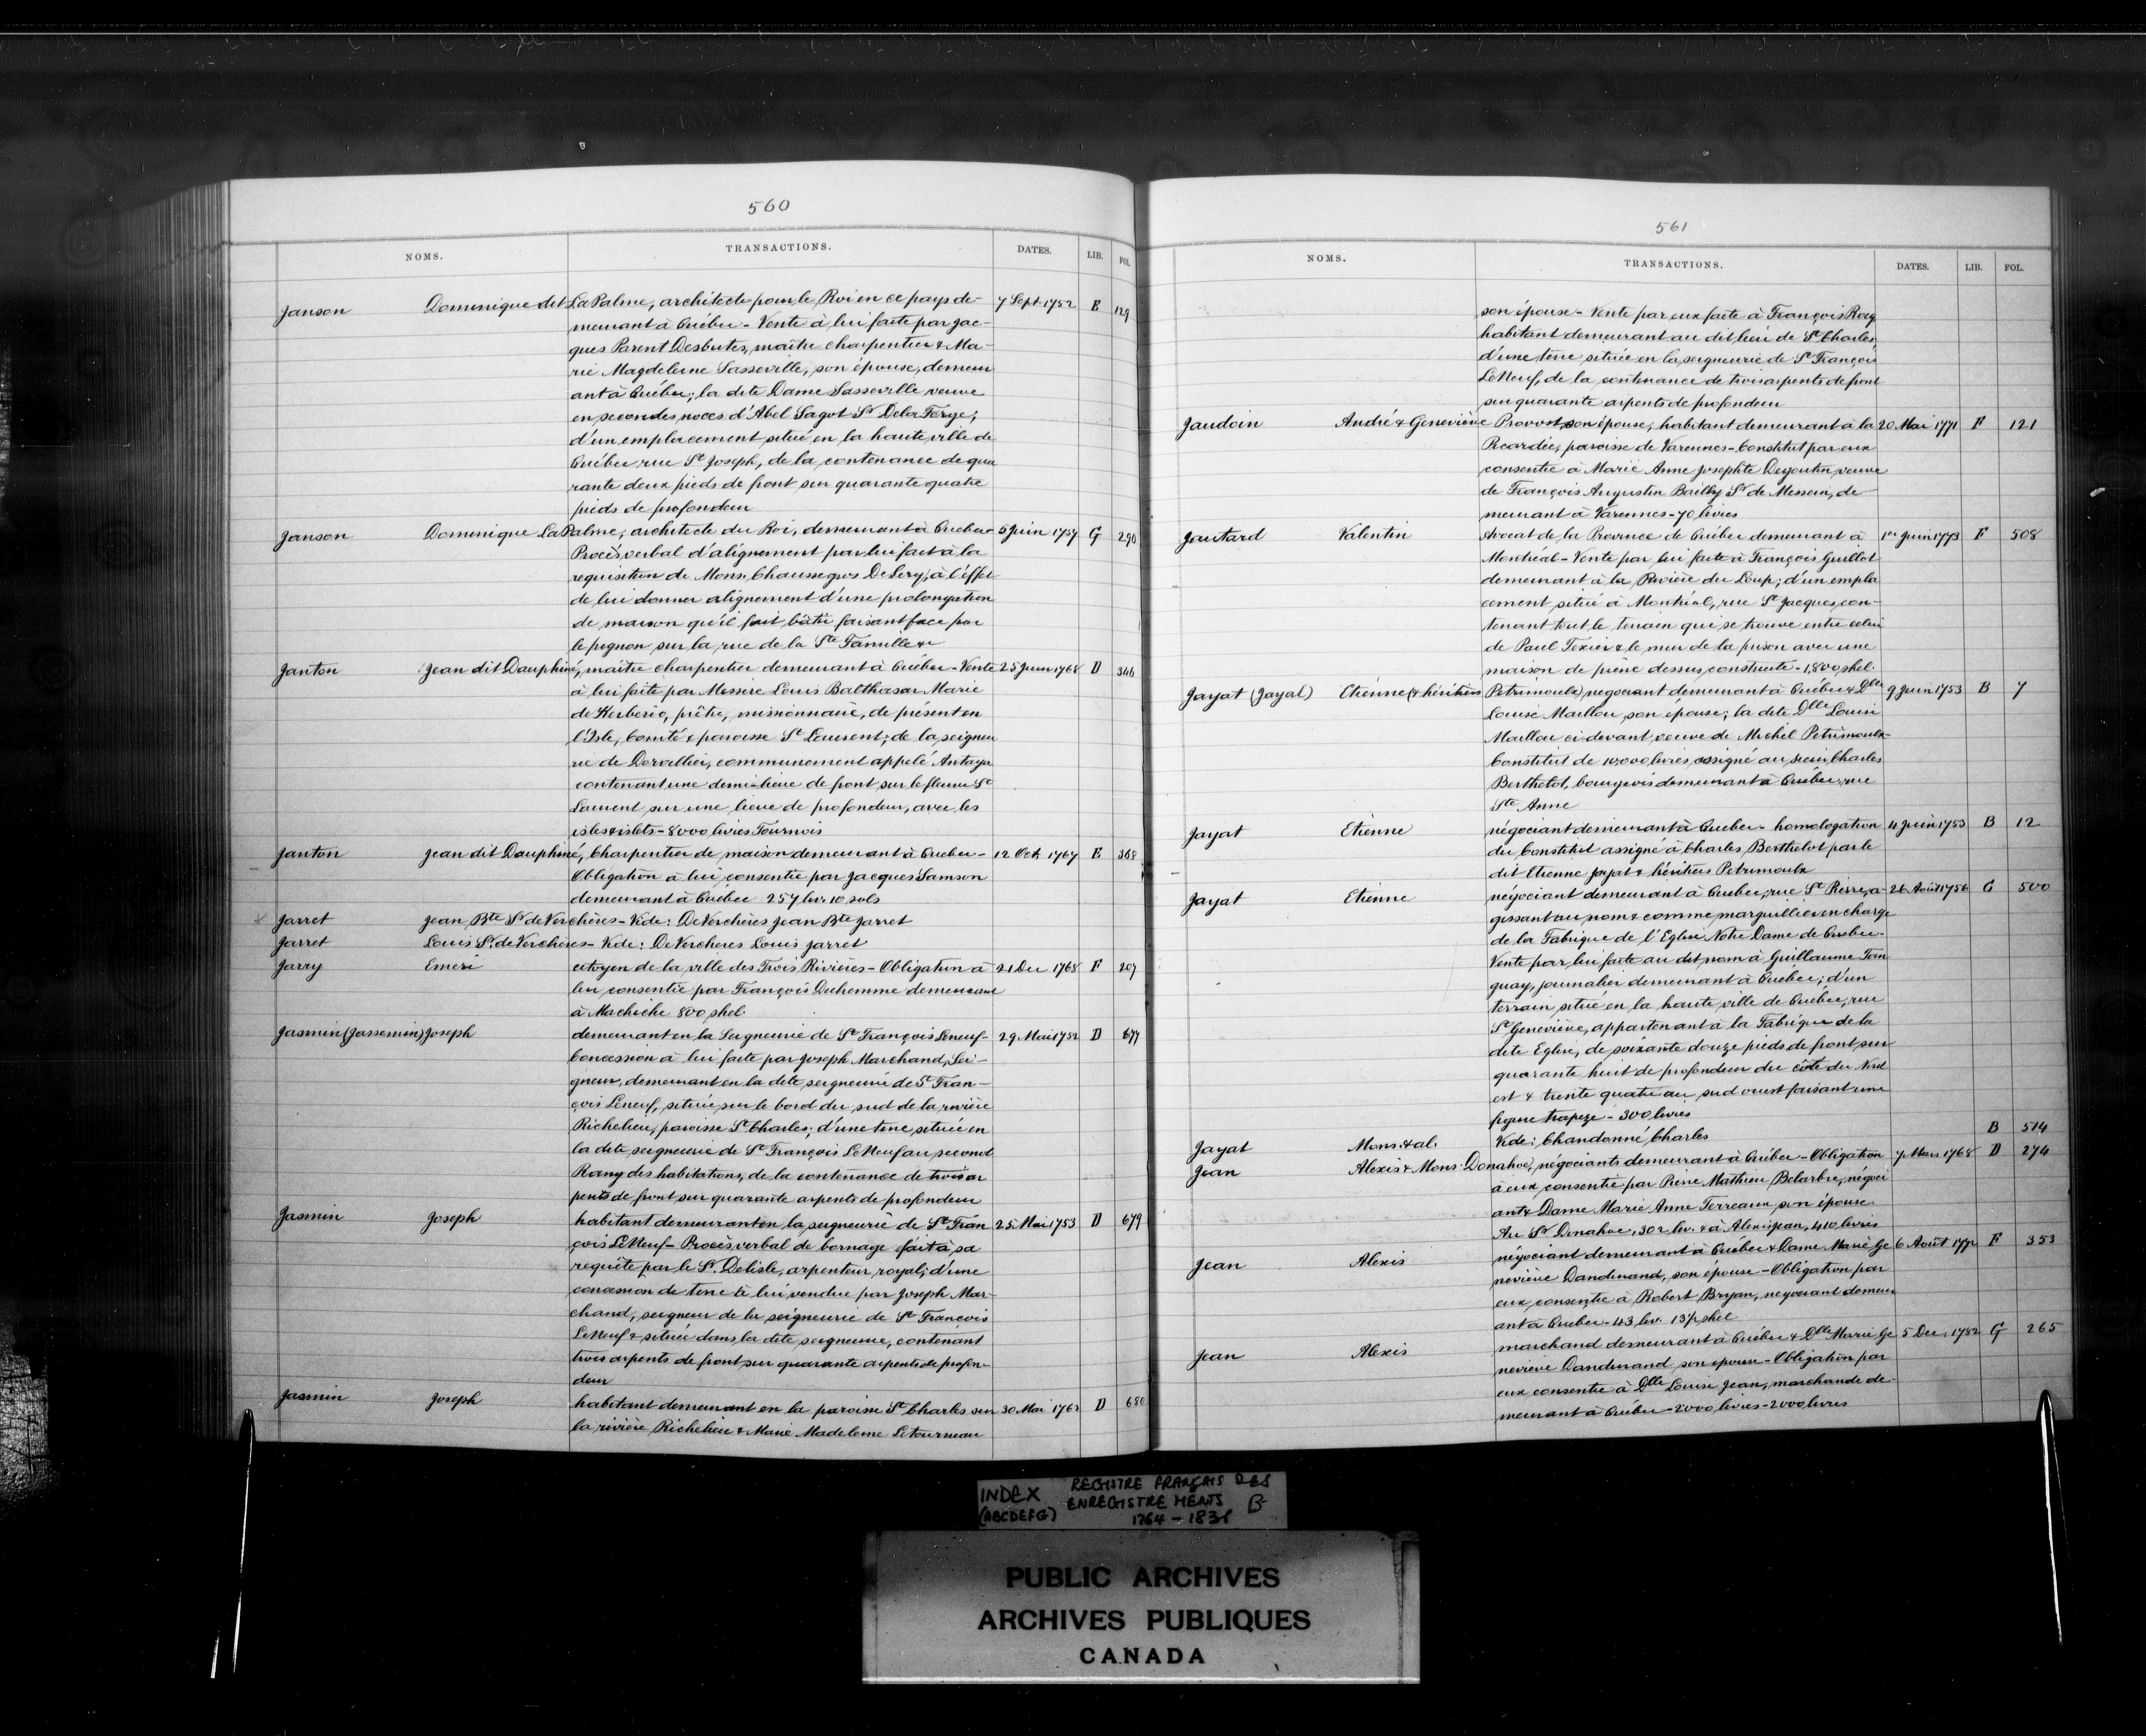 560
NOMS. TRANSACTIONS. DATES. LIB. FOL.
Janson Dominique dit La Palme, architecte pour le Roi en ce pays de- 7 Sept 1752 E 129
meurant à Québec - Vente à lui faite par Jac-
ques Parent Desbutes, maître charpentier & Ma-
rie Magdeleine Sasseville, son épouse, demeur
ant à Québec; la dite Dame Sasseville veuve
en secondes noces d'Abel Sagot Sr Dela Forge;
d'un emplacement situé en la haute ville de
Québec rue St Joseph, de la contenance de qua
rante deux pieds de front sur quarante quatre
pieds de profondeur
Janson Dominique La Palme, architecte du Roi, demeurant à Quebec 5 Juin 1757 G 290
Procès verbal d'alignement par lui fait à la
requisition de Mons. Chaussegros De Lery, à l'effet
de lui donner alignement d'une prolongation
de maison qu'il fait bâtir faisant face par
le pignon sur la rue de la Ste Famille &
Janton Jean dit Dauphiné, maître charpentier demeurant à Québec - Vente 25 Juin 1768 D 346
à lui faite par Messire Louis Balthasar Marie
de Kerberio, prêtre, missionnaire, de présent en
l'Isle, Comité & paroisse St Laurent; de la seigneu
rie de Dorvillier, communement appelé Antaya
contenant une demi-lieue de front sur le fleuve St
Laurent sur une lieue de profondeur, avec les
isles & islets - 8000 livres Tournois
Janton Jean dit Dauphiné, Charpentier de maison demeurant à Quebec - 12 Oct. 1767 E 368
Obligation à lui consentie par Jacques Samson
demeurant à Québec 257 liv. 10 sols
Jarret Jean Bte Sr de Verchères - Vide: De Verchères Jean Bte Jarret
Jarret Louis Sr. de Verchères - Vide: De Verchères Louis Jarret
Jarry Emeri citoyen de la ville des Trois Rivières - Obligation à 21 Dec 1768 F 207
lui consentie par François Duhemme demeurant
à Machiche 800 shel.
Jasmin (Jassemin) Joseph demeurant en la Seigneurie de St François Leneuf - 29 Mai 1752 D 677
Concession à lui faite par Joseph Marchand, Sei-
gneur, demeurant en la dite seigneurie de St Fran-
çois Leneuf, située sur le bord du sud de la rivière
Richelieu, paroisse St Charles; d'une terre située en
la dite seigneurie de St François LeNeuf au second
Rang des habitations, de la contenance de trois ar
pents de front sur quarante arpents de profondeur
Jasmin Joseph habitant demeurant en la seigneurie de St Fran 25 Mai 1753 D 679
çois LeNeuf - Procès verbal de bornage fait à sa
requête par le Sr. Delisle, arpenteur royal; d'une
concession de terre à lui vendue par Joseph Mar-
chand, seigneur de la seigneurie de St François
LeNeuf & située dans la dite seigneurie, contenant
trois arpents de front sur quarante arpents de profon-
deur
Jasmin Joseph habitant demeurant en la paroisse St Charles sur 30 Mai 1763 D 680
la rivière Richelieu & Marie Madeleine Letourneau
561
NOMS. TRANSACTIONS. DATES. LIB. FOL.
son épouse - Vente par eux faite à François Rocq
habitant demeurant au dit lieu de St Charles,
d'une terre située en la seigneurie de St François
LeNeuf, de la contenance de trois arpents de front
sur quarante arpents de profondeur
Jaudoin André & Geneviève Provost son épouse, habitant demeurant à la 20 Mai 1771 F 121
Picardie, paroisse de Varennes - Constitut par eux
consentie à Marie Anne Josephte Dejoutin, veuve
de François Augustin Bailly Sr de Messein, de-
meurant à Varennes - 70 livres
Jautard Valentin Avocat de la Province de Québec demeurant à 1er Juin 1773 F 508
Montréal - Vente par lui faite à François Guillot
demeurant à la Rivière du Loup; d'un empla
cement situé à Montréal, rue St Jacques, con-
tenant tout le terrain qui se trouve entre celui
de Paul Texier & le mur de la prison avec une
maison de pierre dessus construite - 1,800 shel.
Jayat (Jayal) Etienne (& héritiers Petrimoulx) negociant demeurant à Québec & Dlle 9 Juin 1753 B 7
Louise Maillou son épouse; la dite Dlle Louise
Maillou ci-devant veuve de Michel Petrimoulx -
Constitut de 10,000 livres assigné au sieur Charles
Berthelot, bourgeois demeurant à Québec, rue
Ste Anne
Jayat Etienne négociant demeurant à Quebec - homologation 4 Juin 1753 B 12
du Constitut assigné à Charles Berthelot par le
dit Etienne Jayat & héritiers Petrimoulx
Jayat Etienne négociant demeurant à Quebec, rue St Pierre, a- 26 Août 1756 C 500
gissant au nom & comme marguillier en charge
de la Fabrique de l'Eglise Notre Dame de Quebec -
Vente par lui faite au dit nom à Guillaume Tan
guay, journalier demeurant à Quebec; d'un
terrain situé en la haute ville de Québec, rue
St Geneviève, appartenant à la Fabrique de la
dite Eglise, de soixante douze pieds de front sur
quarante huit de profondeur du côté du Nord
est & trente quatre au sud ouest faisant une
figure trapeze - 300 livres
Jayat Mons. & al. Vide: Chandonné Charles B 514
Jean Alexis & Mons. Donahoe, négociants demeurant à Québec - Obligation 7 Mars 1768 D 274
à eux consentie par Pierre Mathieu Belarbre, négoci
ant & Dame Marie Anne Terreaux son épouse
Au Sr Donahoe, 302 liv. & à Alexis Jean, 410 livres
Jean Alexis négociant demeurant à Québec & Dame Marie Ge 6 Août 1772 F 353
neviève Dandurand, son épouse - Obligation par
eux consentie à Robert Bryan, negociant demeur
ant à Quebec - 43 liv. 13/2 shel
Jean Alexis marchand demeurant à Québec & Dlle Marie Ge 5 Dec. 1752 G 265
nevieve Dandurand son epouse - Obligation par
eux consentie à Dlle Louise Jean, marchande de-
meurant à Québec - 2000 livres - 2000 livres
INDEX REGISTRE FRANÇAIS DES
(ABCDEFG) ENREGISTREMENTS B-
1764 - 1836
PUBLIC ARCHIVES
ARCHIVES PUBLIQUES
CANADA